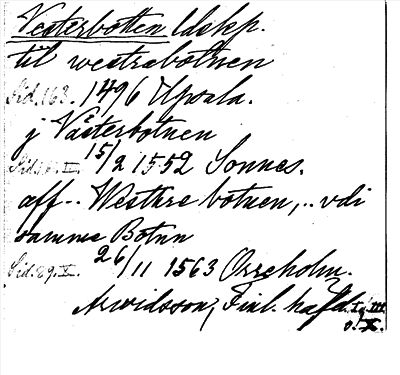 Vesterbotten ldskp.
til westrabotnen
Sid. 163. 1496 Upsala.
j Västerbotnen
Sid. II. 15/2 1552 Sonnes.
aff -- Westhre botnen, -- vdi
samme Botnn
Sid. 29. V. 26/11 1563 Örreholm.
Arwidsson, Finl. häfd.
o. X.